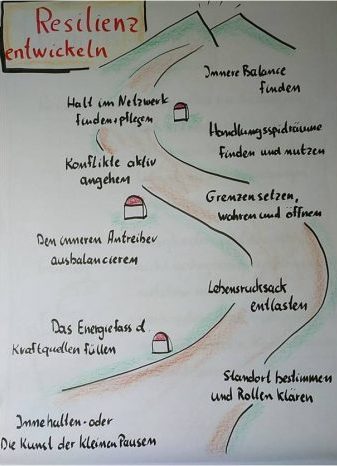 Resilienz
entwickeln
Innere Balance
finden
Halt im Netzwerk
finden + pflegen
Handlungsspielräume
finden und nutzen
Konflikte aktiv
angehen
Grenzen setzen,
wahren und öffnen
Den inneren Antreiber
ausbalancieren
Lebensrucksack
entlasten
Das Energiefass d.
Kraftquellen füllen
Standort bestimmen
und Rollen klären
Innehalten - oder
Die Kunst der kleinen Pausen